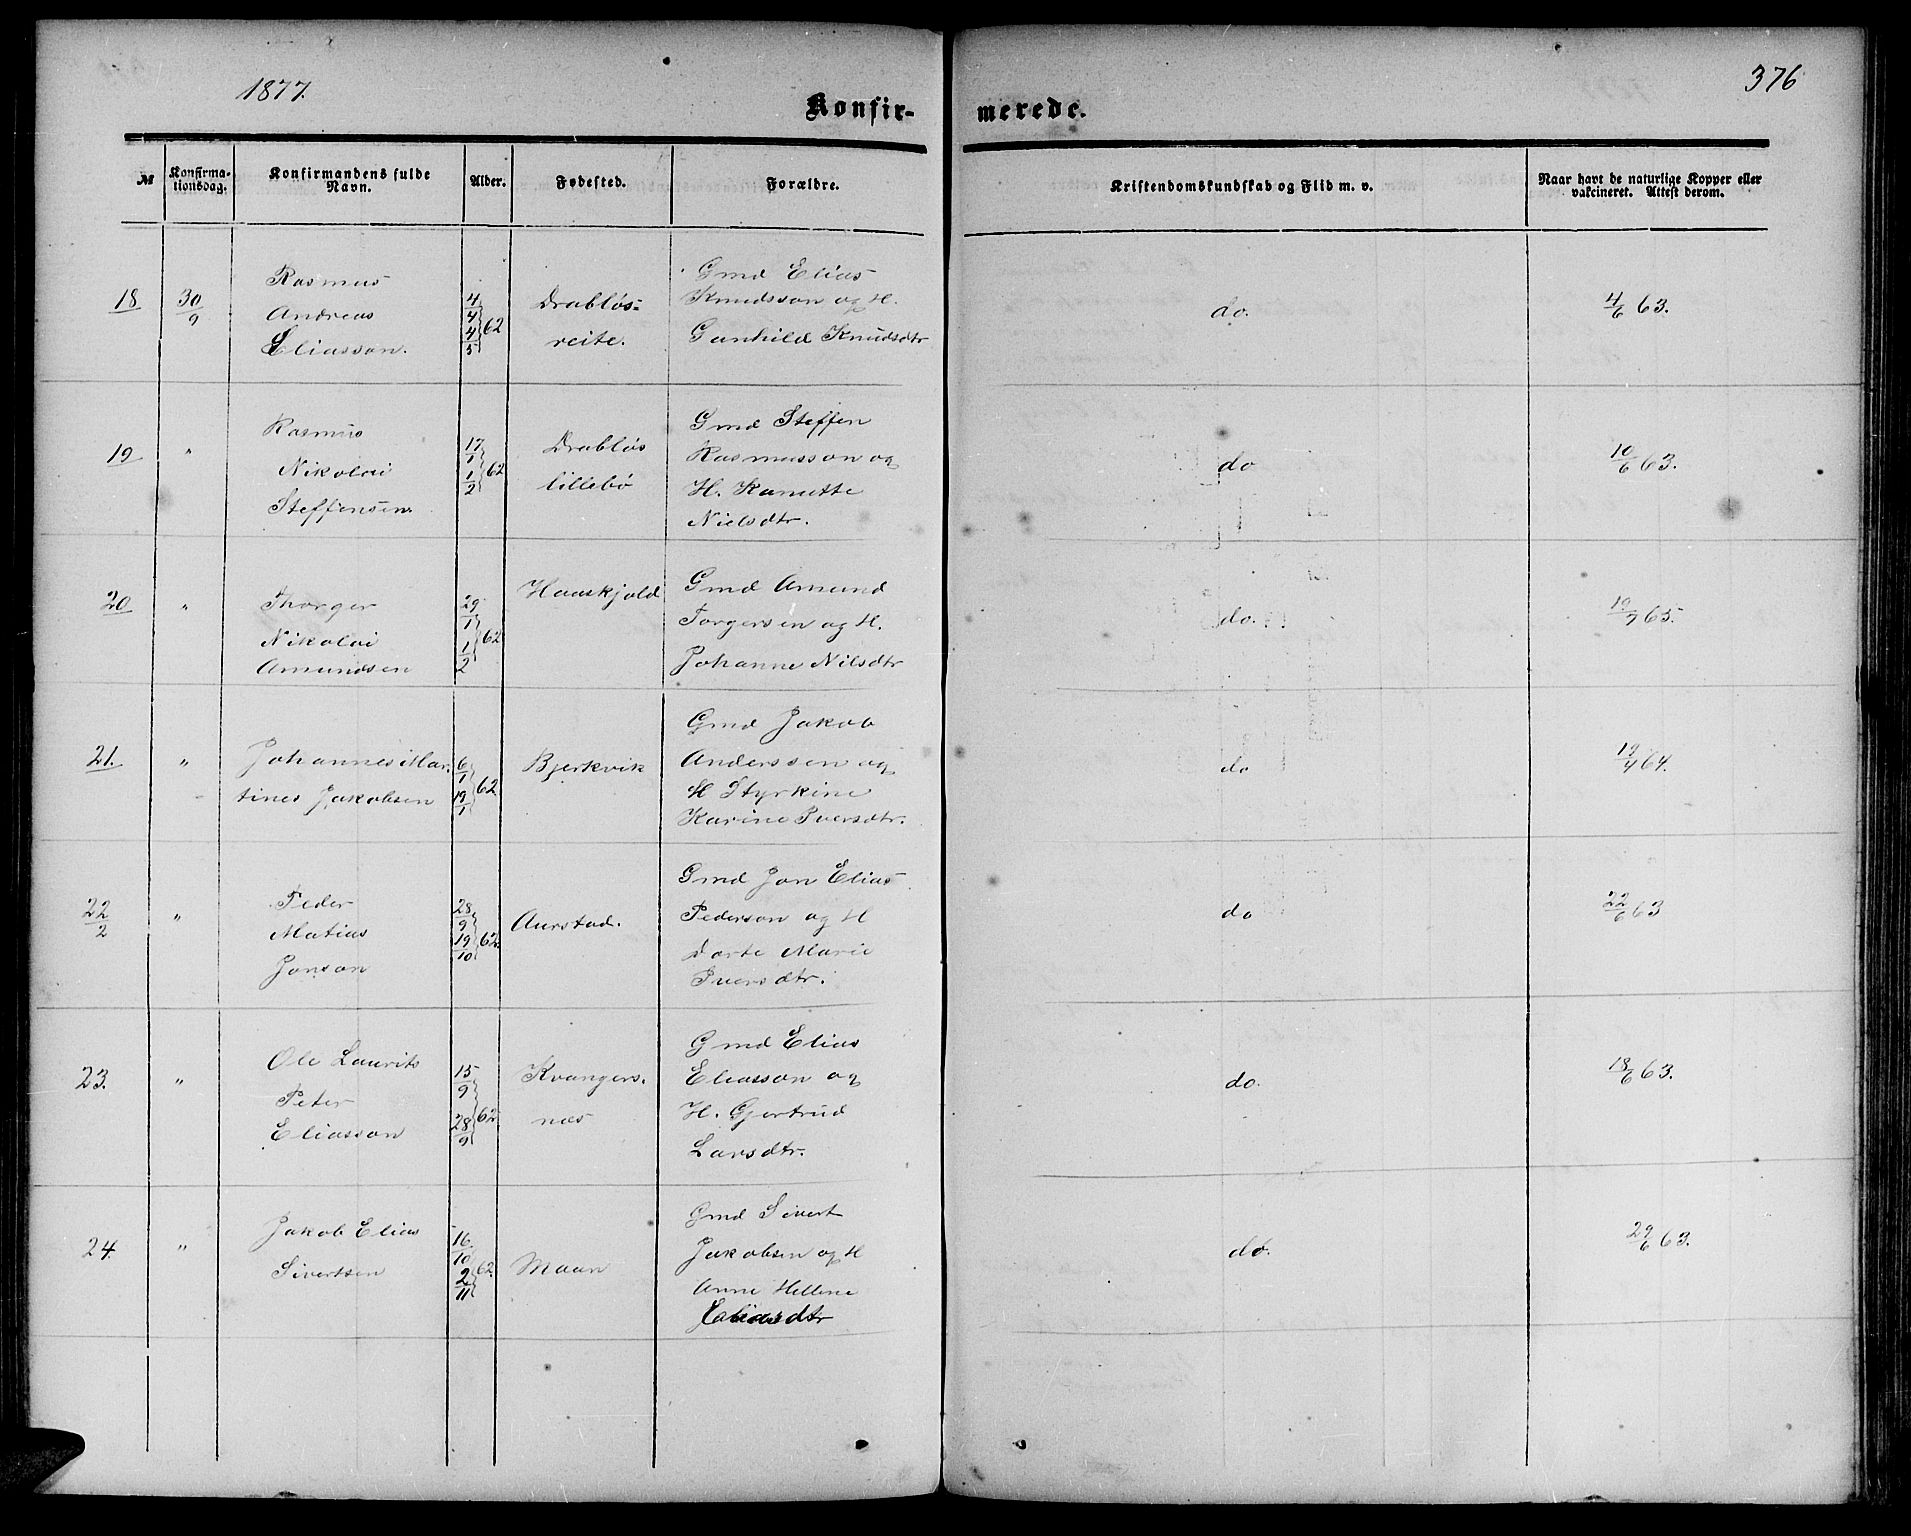 1877.
376
Konfir- merede.
№ Konfirma-tionsdag. Konfirmandens fulde Navn. Alder. Fødested. Forældre. Kristendomskundskab og Flid m. v. Naar havt de naturlige Kopper eller vakcineret. Attest derom.
18 30/9 Rasmus Andreas Eliasson. 4/4 4/5 62 Drabløs=reite. Gmd Elias Knudsson og H. Gunhild Knudsdtr do. 4/6 63.
19 " Rasmus Nikolai Steffensen. 17/1 1/2 62 Drabløs lillebø Gmd Steffen Rasmusson og H. Kanutte Nielsdtr. do 10/6 63.
20 " Thorger Nikolai Amundsen 29/1 1/2 62 Haaskjold Gmd Amund Torgersen og H. Johanne Nilsdtr do. 19/7 65.
21. " Johannes Mar-tines Jakobsen 6/1 19/1 62 Bjerkvik Gmd Jakob Anderssen og H Styrkine Karine Iversdtr. do 19/4 64.
22/2 " Peder Matias Jonson 28/9 19/10 62. Aurstad. Gmd Jon Elias Pederson og H Dorte Marie Iversdtr. do 22/6 63
23. " Ole Laurits Peter Eliasson 15/9 28/9 62 Kvangers. nas Gmd Elias Eliasson og H. Gjertrud Larsdtr. do. 18/6 63.
24. " Jakob Elias Sivertsen 16/10 2/11 62. Maan Gmd Sivert Jakobsen og H Anne Hellene Eliasdtr do. 29/6 63.